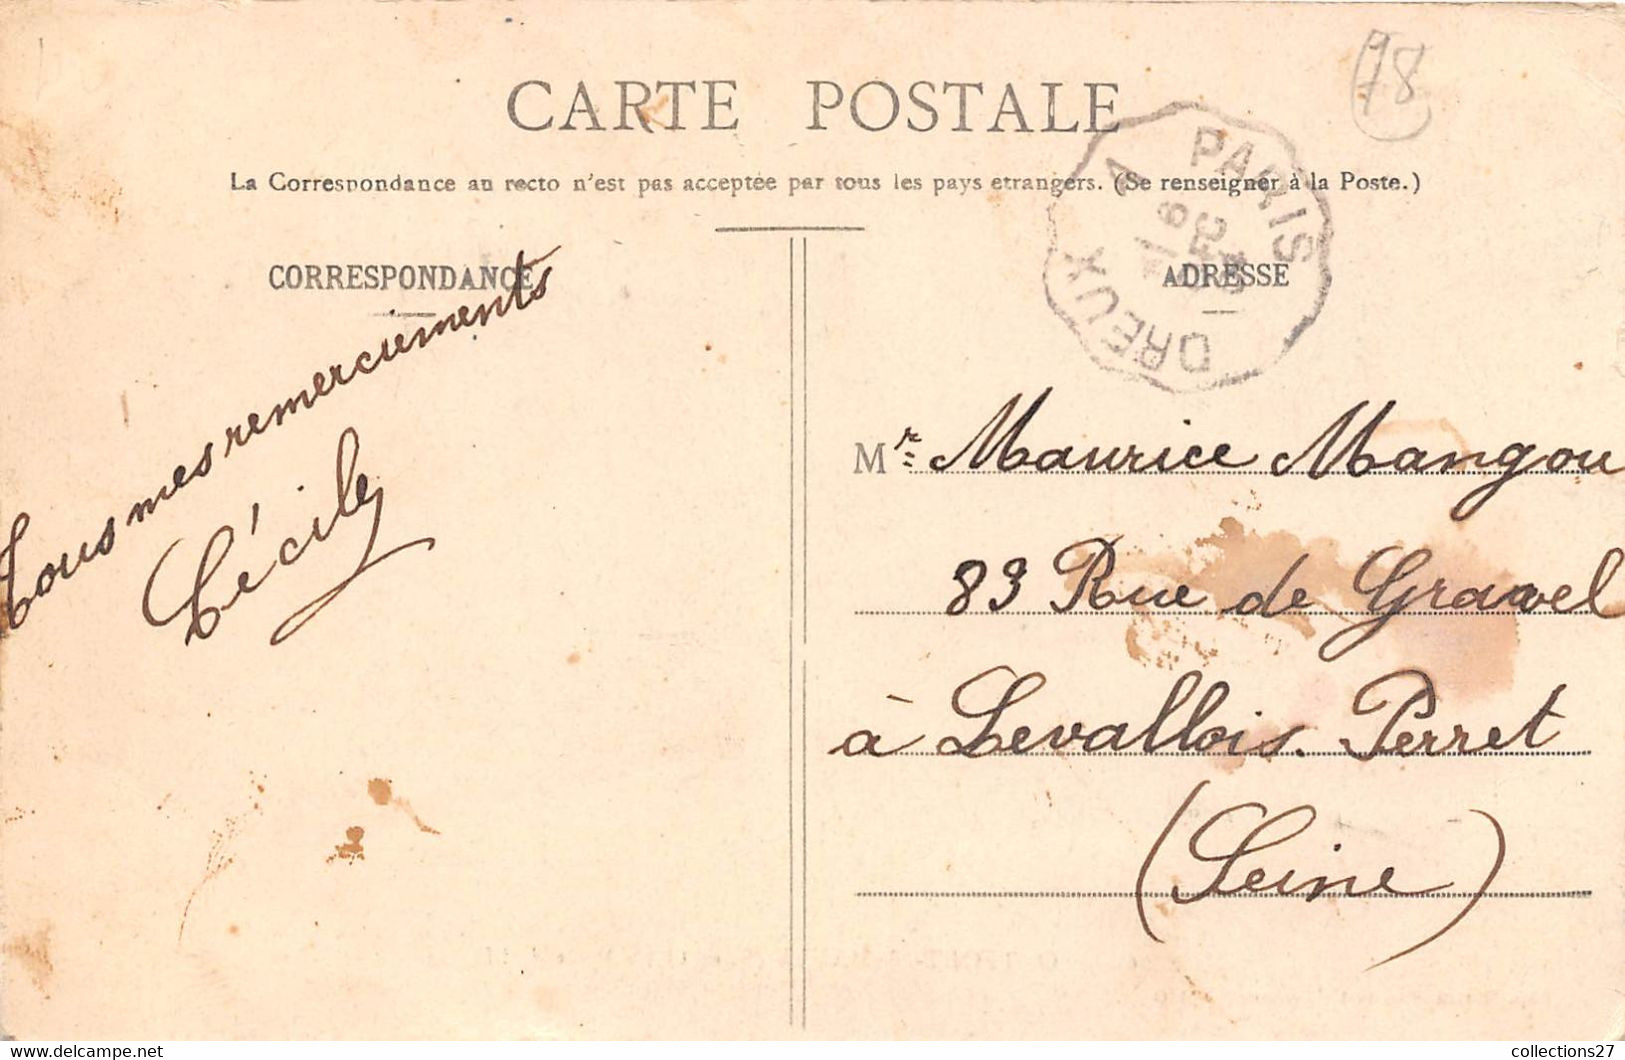 CARTE POSTALE
La Correspondance au recto n'est pas acceptée par tous les pays étrangers. (Se renseigner à la Poste.)
CORRESPONDANCE
ADRESSE
PARIS
DREUX
78
Tous mes remerciements
Cécile
Mr Maurice Mangou
83 Rue de Gravel
à Levallois-Perret
(Seine)
collections27